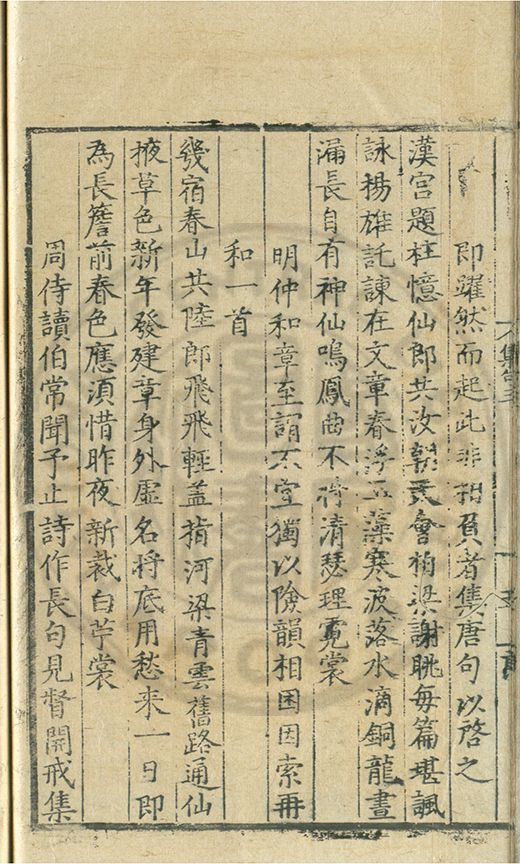 即躍然而起此非招負者集唐句以啓之
漢宮題柱憶仙郎共汝朝天會柏梁謝眺每篇堪諷
詠楊雄託諫在文章春浮玉藻寒波落水滴銅龍晝
漏長自有神仙鳴鳳曲不將清瑟理霓裳
明仲和章至謂不當獨以險韻相困因索再
和一首
幾宿春山共陸郎飛飛輕蓋指河梁青雲舊路通仙
掖草色新年發建章身外虛名將底用愁來一日即
為長簷前春色應須惜昨夜新裁白苧裳
周侍讀伯常聞予止詩作長句見督開戒集